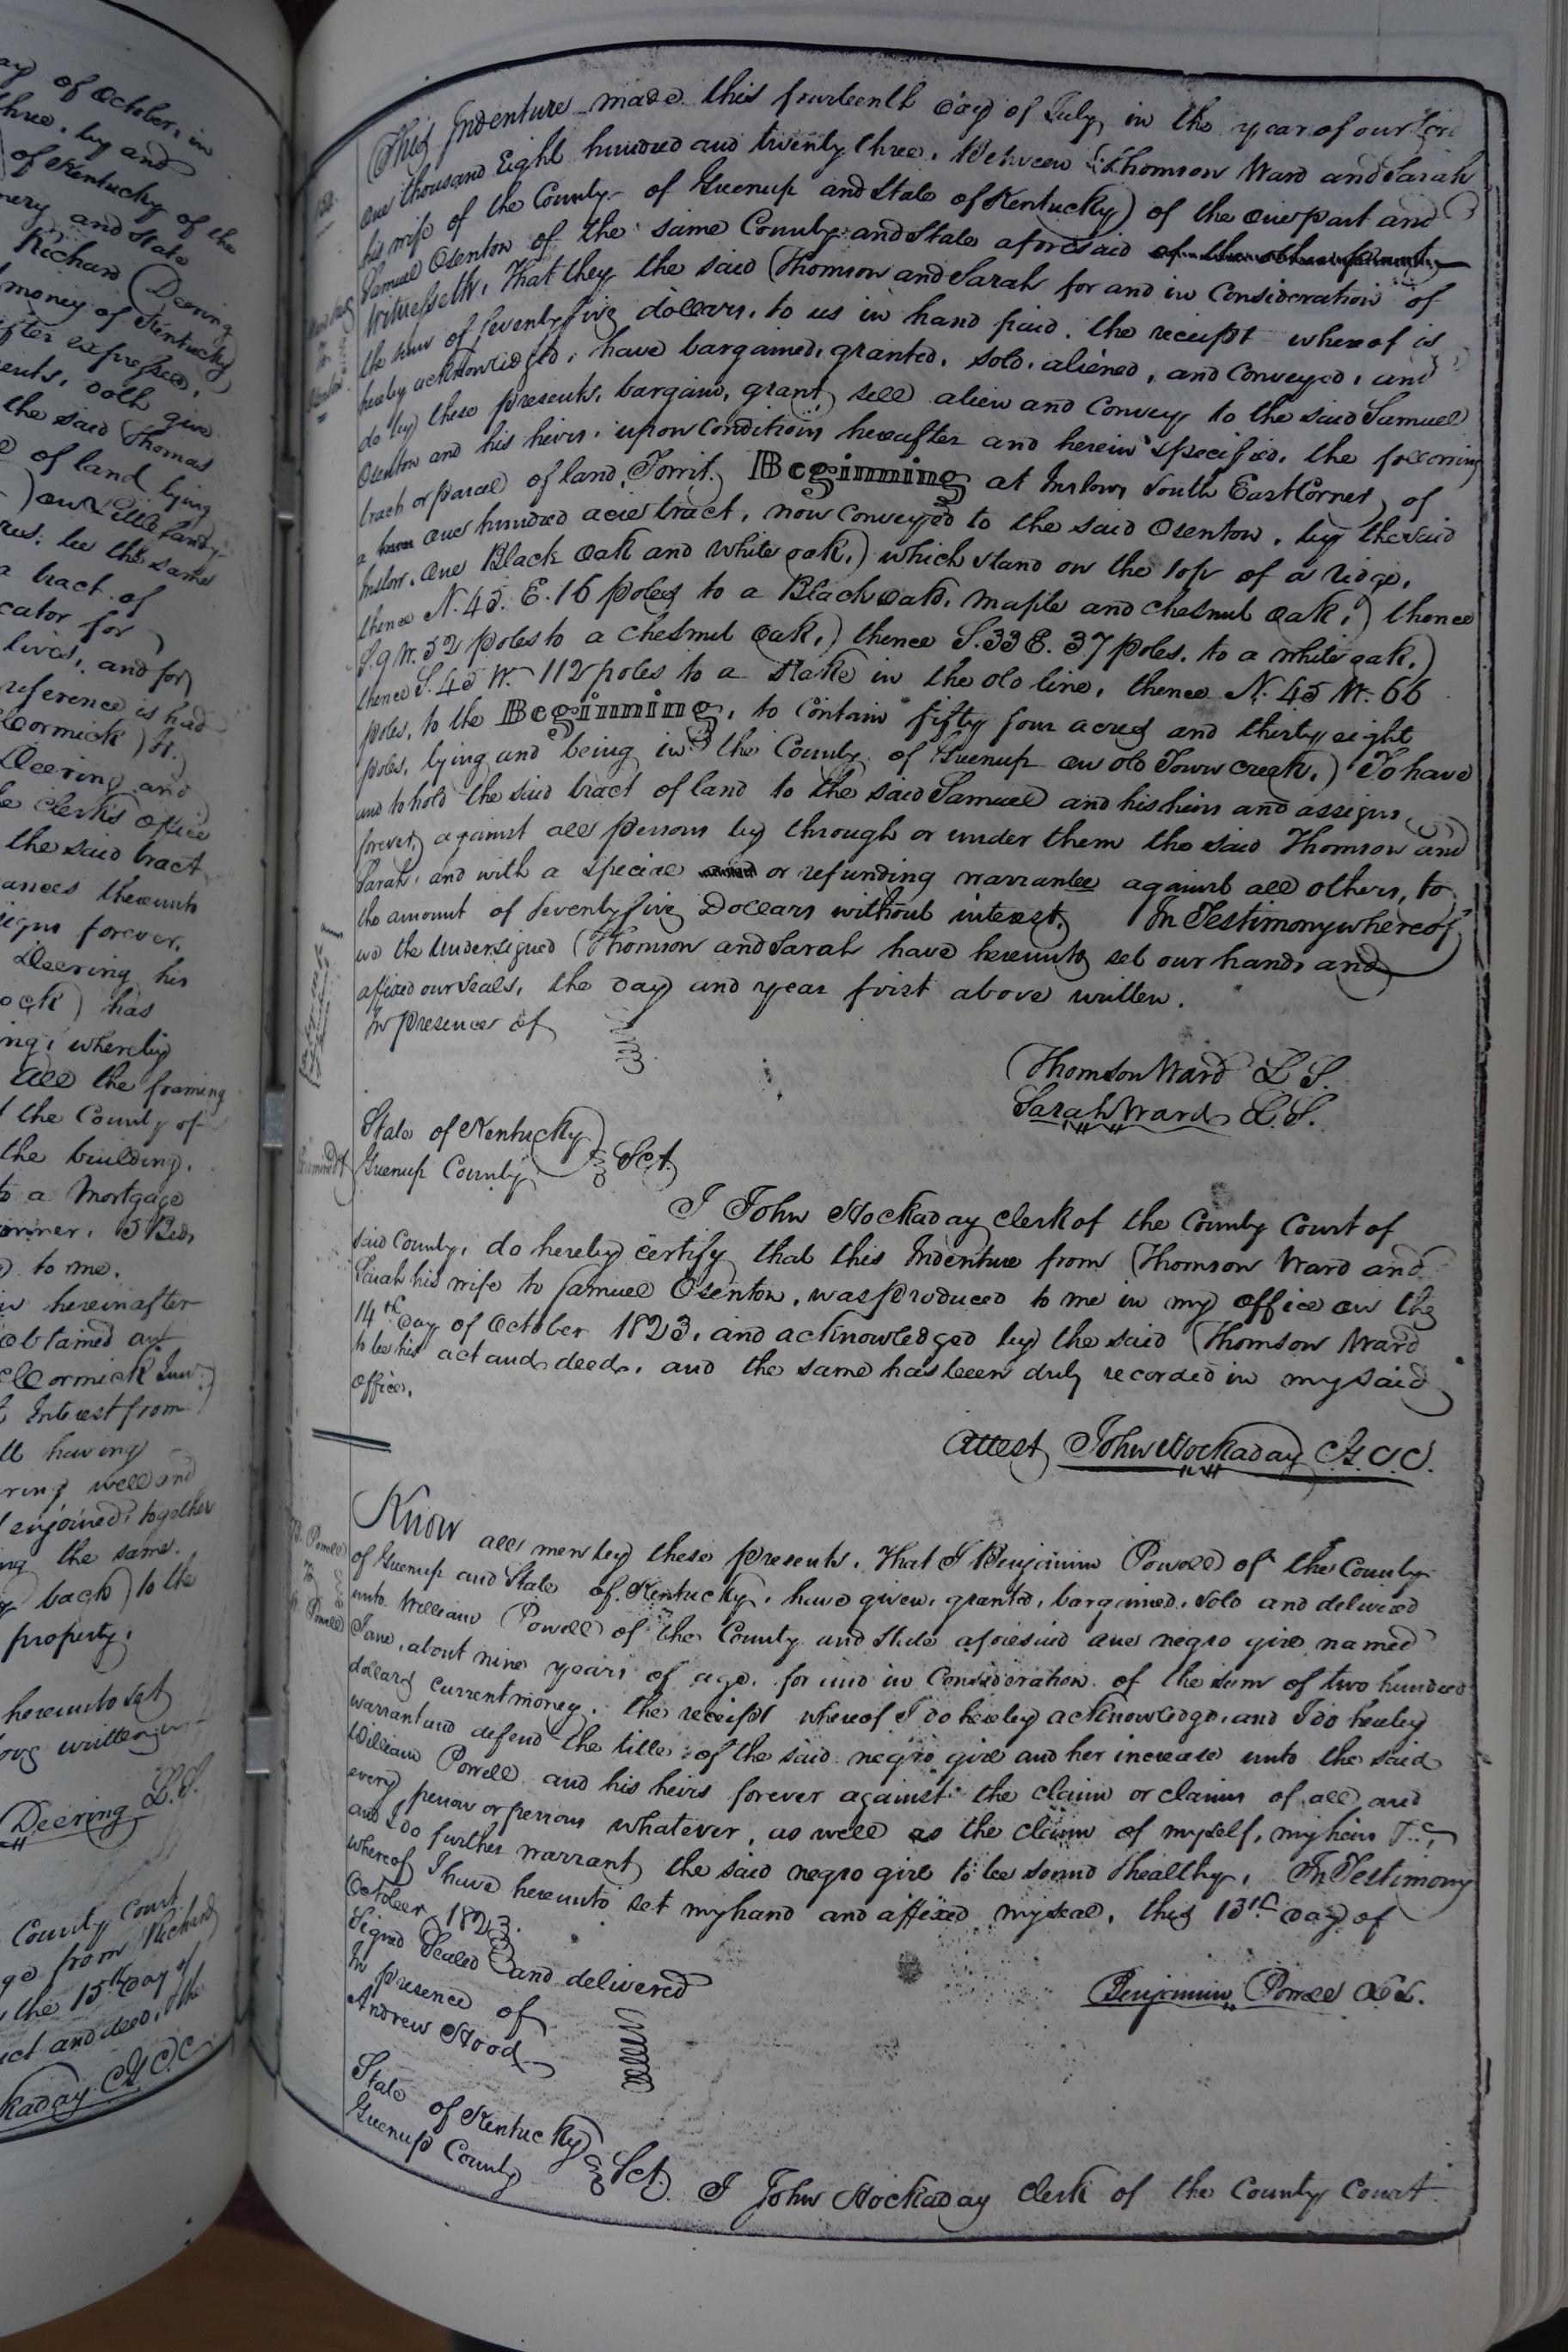 ay of October, in
three, by and
of Kentucky of the
mery and State
Richard Deering
money of Kentucky
after expressed,
ents, doth give
the said Thomas
of land lying
on Little Sandy
be the same
a tract of
cator for
lives, and for
reference is had
Cormick
Deering and
clerks office
the said tract
ances thereunto
igns forever,
Deering his
has
ing, whereby
all the framing
the County of
the building,
to a Mortgage
to me.
hereinafter
obtained an
Cormick Junr.
Interest from
having
ring well and
enjoined, together
ing the same,
back to the
property,
hereunto set
written
Deering L.S.
County Court
from Richard
the 15th day of
act and deed, the
kaday C.G.C.C.
This Indenture made this fourteenth day of July in the year of our Lord
one thousand Eight hundred and twenty three, Between Thomson Ward and Sarah
his wife of the County of Greenup and State of Kentucky of the one part and
Samuel Osenton of the same County and State aforesaid of the other part
Witnesseth, That they the said Thomson and Sarah for and in Consideration of
the sum of Seventy five dollars, to us in hand paid, the receipt whereof is
hereby acknowledged, have bargained, granted, sold, aliened, and Conveyed, and
do by these presents, bargain, grant, sell alien and Convey to the said Samuel
Osenton and his heirs, upon Conditions hereafter and herein specified, the following
tract or parcel of land, Towit. Beginning at Inslows South East Corner of
a one hundred acre tract, now Conveyed to the said Osenton, by the said
Inslow, One Black Oak and White oak, which stand on the top of a ridge,
thence N. 45. E. 16 poles to a Black oak, maple and chesnut oak, thence
S. 9 W. 52 poles to a chesnut Oak, thence S. 33 E. 37 poles, to a white oak,
thence S. 45 W. 112 poles to a Stake in the old line, thence N. 45 W. 66
poles, to the Beginning, to Contain fifty four acres and thirty eight
poles, lying and being in the County of Greenup on old Town creek, To have
and to hold the said tract of land to the said Samuel and his heirs and assigns
forever, against all persons by through or under them the said Thomson and
Sarah, and with a special or refunding warrantee against all others, to
the amount of Seventy five Dollars without interest. In Testimony whereof
we the Undersigned Thomson and Sarah have hereunto set our hands and
affixed our Seals, the day and year first above written.
In presence of
Thomson Ward L S.
Sarah Ward L. S.
State of Kentucky
Greenup County Sct.
I John Hockaday Clerk of the County Court of
said County, do hereby certify that this Indenture from Thomson Ward and
Sarah his wife to Samuel Osenton, was produced to me in my office on the
14th day of October 1823, and acknowledged by the said Thomson Ward
to be his act and deed, and the same has been duly recorded in my said
office.
Attest John Hockaday C.G.C.C.
B. Powell
to
W. Powell
Know all men by these presents, That I Benjamin Powell of the County
of Greenup and State of Kentucky, have given, granted, bargained, Sold and delivered
unto William Powell of the County and State aforesaid one negro girl named
Jane, about nine years of age, for and in Consideration of the sum of two hundred
dollars current money, the receipt whereof I do hereby acknowledge, and I do hereby
warrant and defend the title of the said negro girl and her increase unto the said
William Powell and his heirs forever against the claim or claims of all and
every person or persons whatever, as well as the claim of myself, my heirs
and I do further warrant the said negro girl to be sound & healthy, In Testimony
whereof I have hereunto set my hand and affixed my seal, this 13th day of
October 1823.
Signed Sealed and delivered
In presence of
Andrew Hood
Benjamin Powell
State of Kentucky
Greenup County Sct.
I John Hockaday Clerk of the County Court